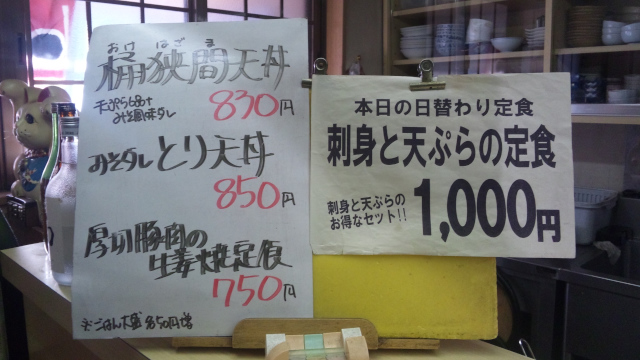 おけはざま
桶狭間天丼
天ぷら6品+
みそ風味ダレ
830円
みそダレとり天丼
850円
厚切豚肉の
生姜焼定食
750円
※ごはん大盛 各50円増
本日の日替わり定食
刺身と天ぷらの定食
刺身と天ぷらの
お得なセット!!
1,000円